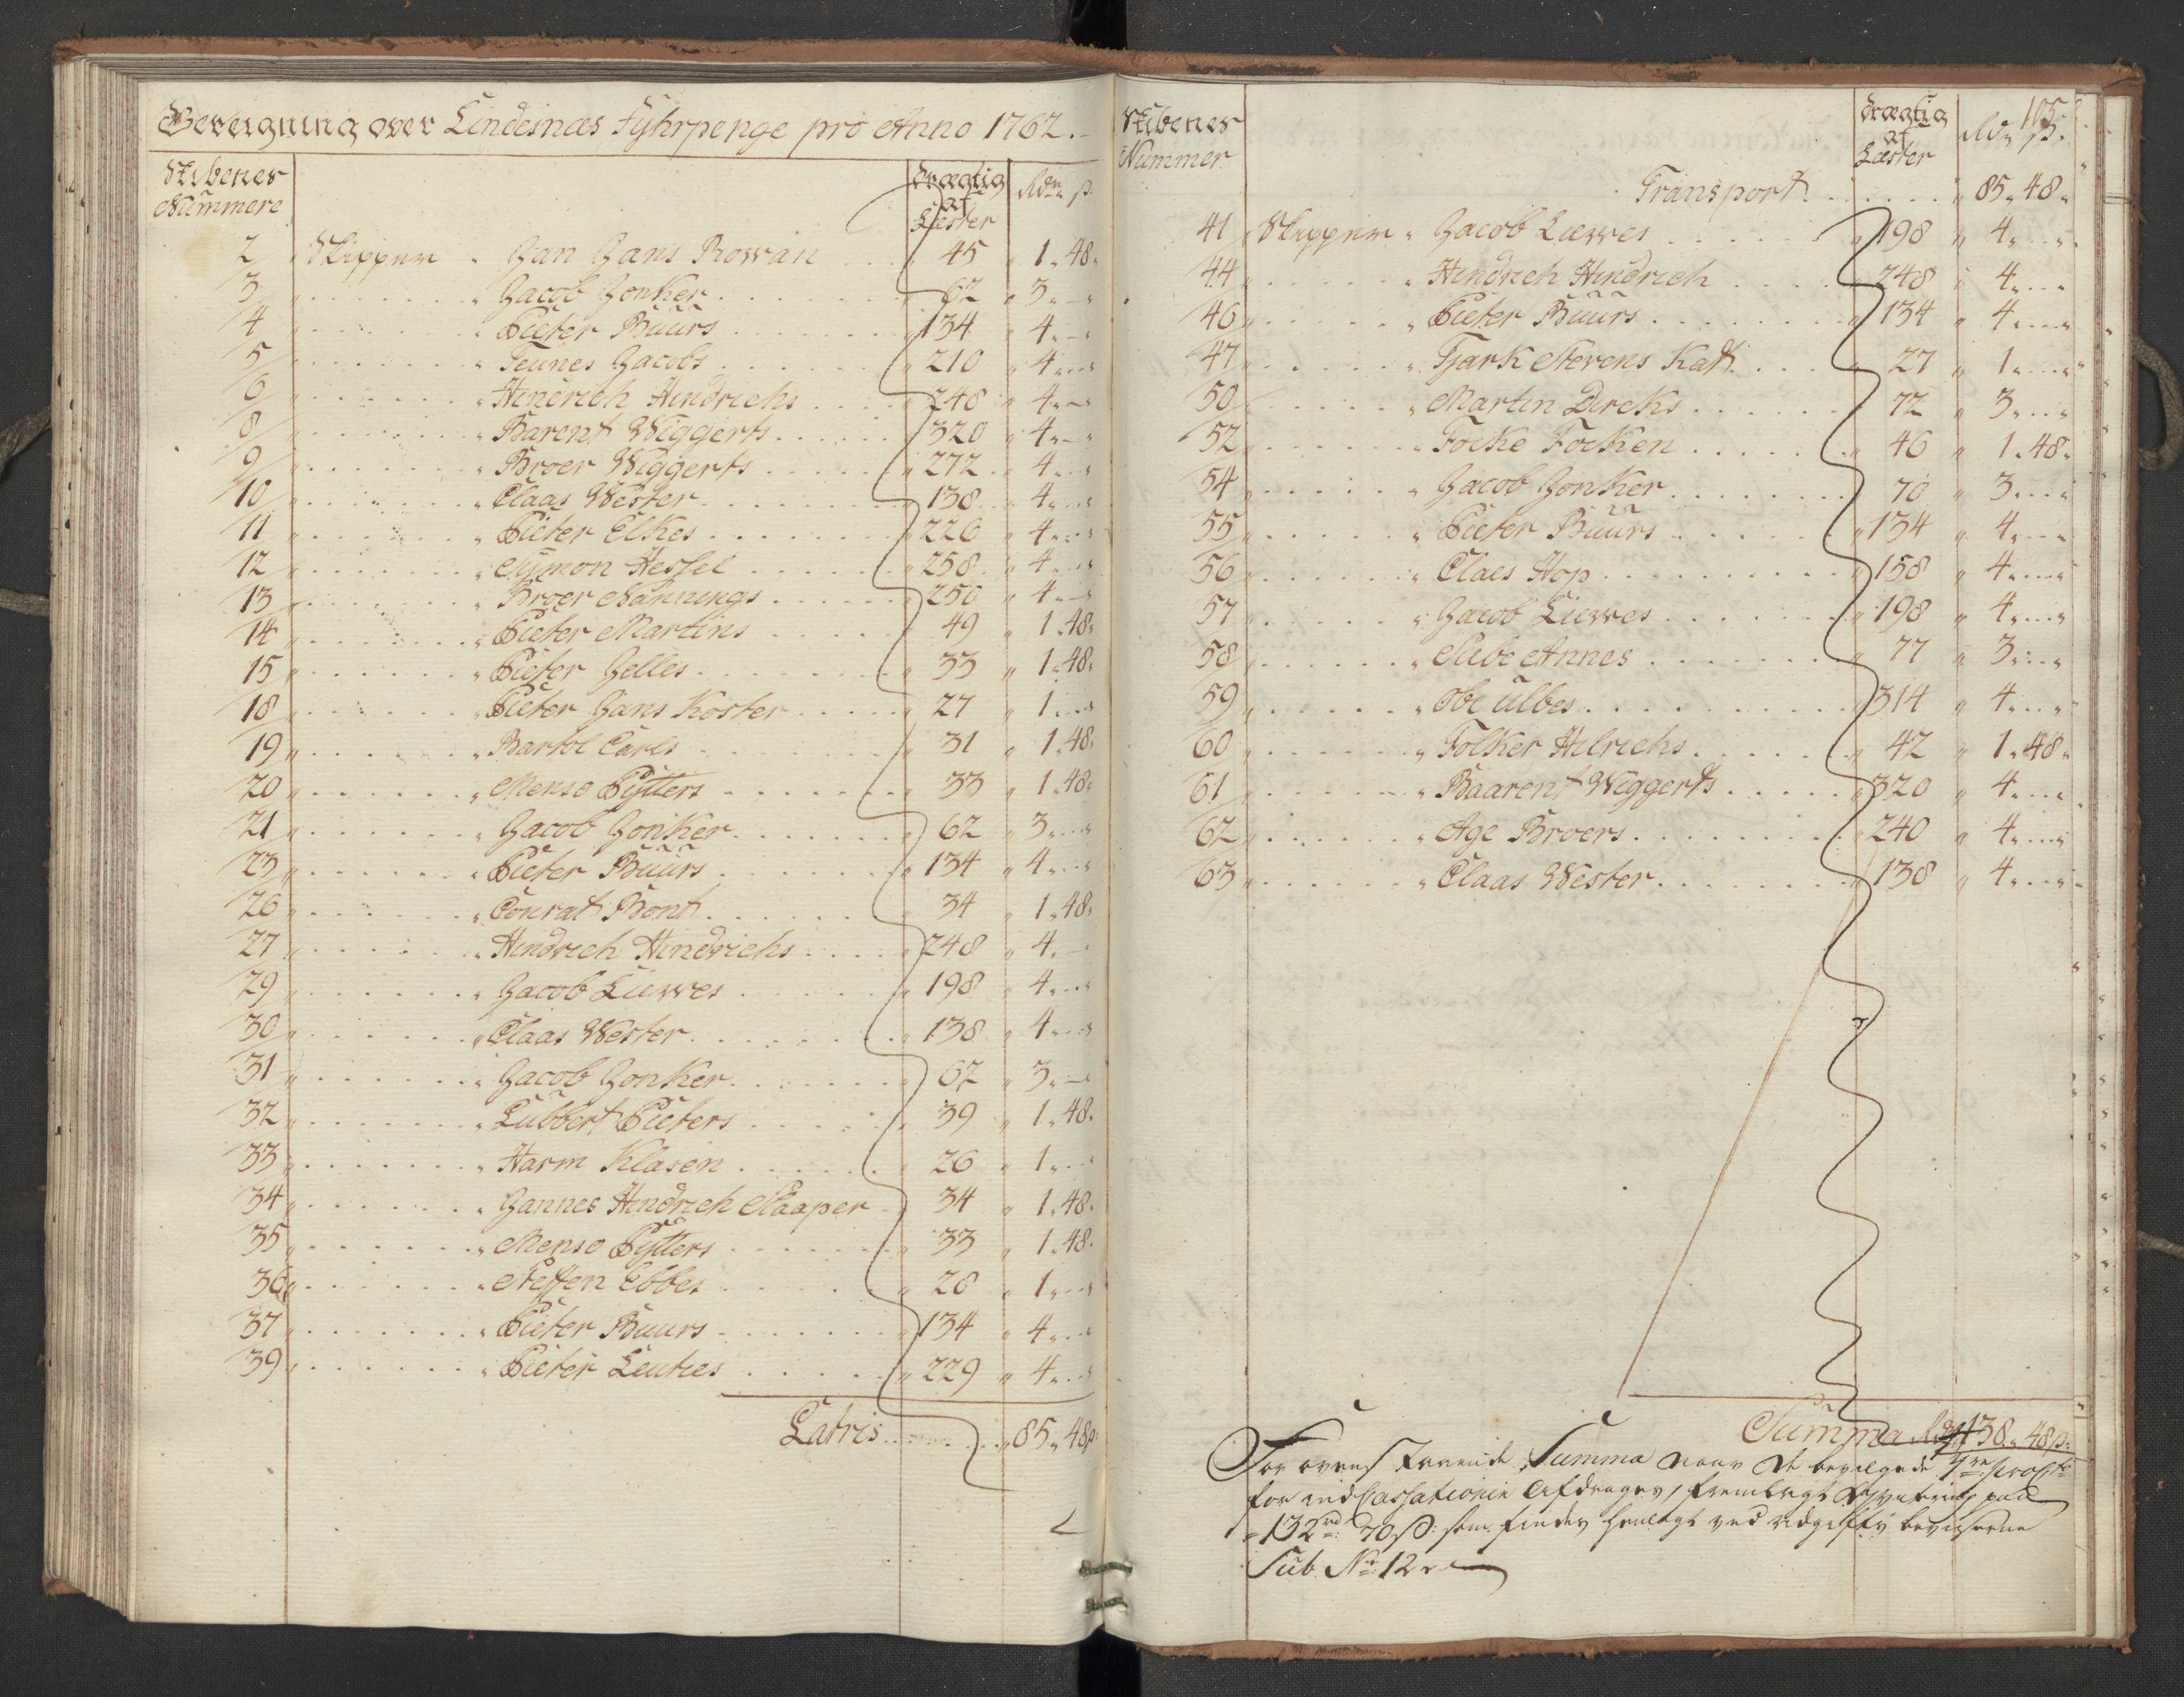 Beregning over Lindesnæs Fyhrpenge pro Anno 1762.
Skibenes Nummere | Drægtig af Læster | Rdr ß
2 Skipper Jan Jans Rowan 45 1. 48
3 Jacob Jonker 62 3
4 Pieter Buurs 134 4
5 Teunes Jacobs 210 4
6 Hindrich Hindrichs 248 4
8 Barent Wiggerts 320 4
9 Broer Wiggerts 272 4
10 Claas Wester 138 4
11 Pieter Elkes 226 4
12 Symon Hessel 258 4
13 Broer Nannings 250 4
14 Pieter Martins 49 1. 48
15 Pieter Jelles 33 1. 48
18 Pieter Jans Koster 27 1
19 Bartol Carls 31 1. 48
20 Menso Pytters 33 1. 48
21 Jacob Jonker 62 3
23 Pieter Buurs 134 4
26 Conrat Bont 34 1. 48
27 Hindrich Hindrichs 248 4
29 Jacob Liewes 198 4
30 Claas Wester 138 4
31 Jacob Jonker 62 3
32 Lubbert Pieters 39 1. 48
33 Harm Klasen 26 1
34 Jannes Hindrich Slaaper 34 1. 48
35 Menso Pytters 33 1. 48
36 Steffen Ebbes 28 1
37 Pieter Buurs 134 4
39 Pieter Leuties 229 4
Latris 85. 48 ß
105
Skibenes Nummer | Drægtig af Læster | Rdr ß
Transport 85. 48
41 Skipper Jacob Liewes 198 4
44 Hindrich Hindrich 248 4
46 Pieter Buurs 134 4
47 Tjark Stevens Katt 27 1
50 Martin Dircks 72 3
52 Focke Focken 46 1. 48
54 Jacob Jonker 70 3
55 Pieter Buurs 134 4
56 Claes Hop 158 4
57 Jacob Liewes 198 4
58 Sibe Annes 77 3
59 Obe Ulbes 314 4
60 Folker Hilrichs 42 1. 48
61 Baarent Wiggerts 320 4
62 Age Broers 240 4
63 Claas Wester 138 4
Summa Rdr 138. 48 ß
For ovenstaaende Summa naar de bevilgede 4re proCto
for indCassationen Afdrages, fremlagt Qvitering paa
132 rd 70 ß: som findes henlagt ved udgifts beviserne
Sub No 12